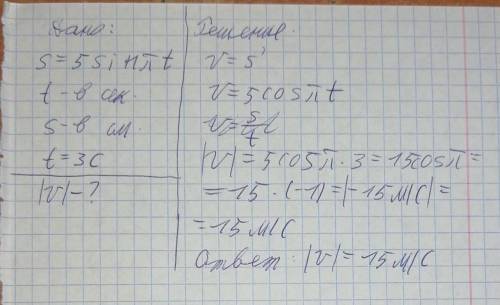 Дано:
s=5sinπt
t-в сек.
s-в см.
t=3с
|v|-?
Решение.
v=s'
v=5cosπt
v=s/t
|v|=5cosπ·3=15cosπ=
=15·(-1)=|-15м/с|=
=15м/с
Ответ: |v|=15м/с